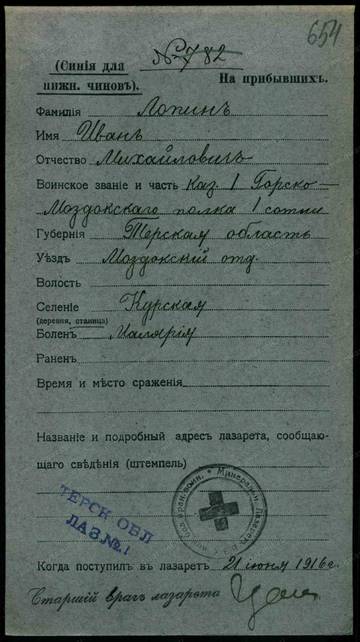 654
(Синія для нижн. чиновъ).
№ 782
На прибывшихъ.
Фамилія Лопинъ
Имя Иванъ
Отчество Михайловичъ
Воинское званіе и часть Каз. 1 Горско-
Моздокскаго полка 1 сотни
Губернія Терская область
Уѣздъ Моздокскій отд.
Волость
Селеніе Курская
(деревня, станица)
Боленъ Малярія
Раненъ
Время и мѣсто сраженія
Названіе и подробный адресъ лазарета, сообщаю-
щаго свѣдѣнія (штемпель)
ТЕРСК ОБЛ
ЛАЗ. № 1
Когда поступилъ въ лазаретъ 21 іюня 1916 г.
Старшій врачъ лазарета